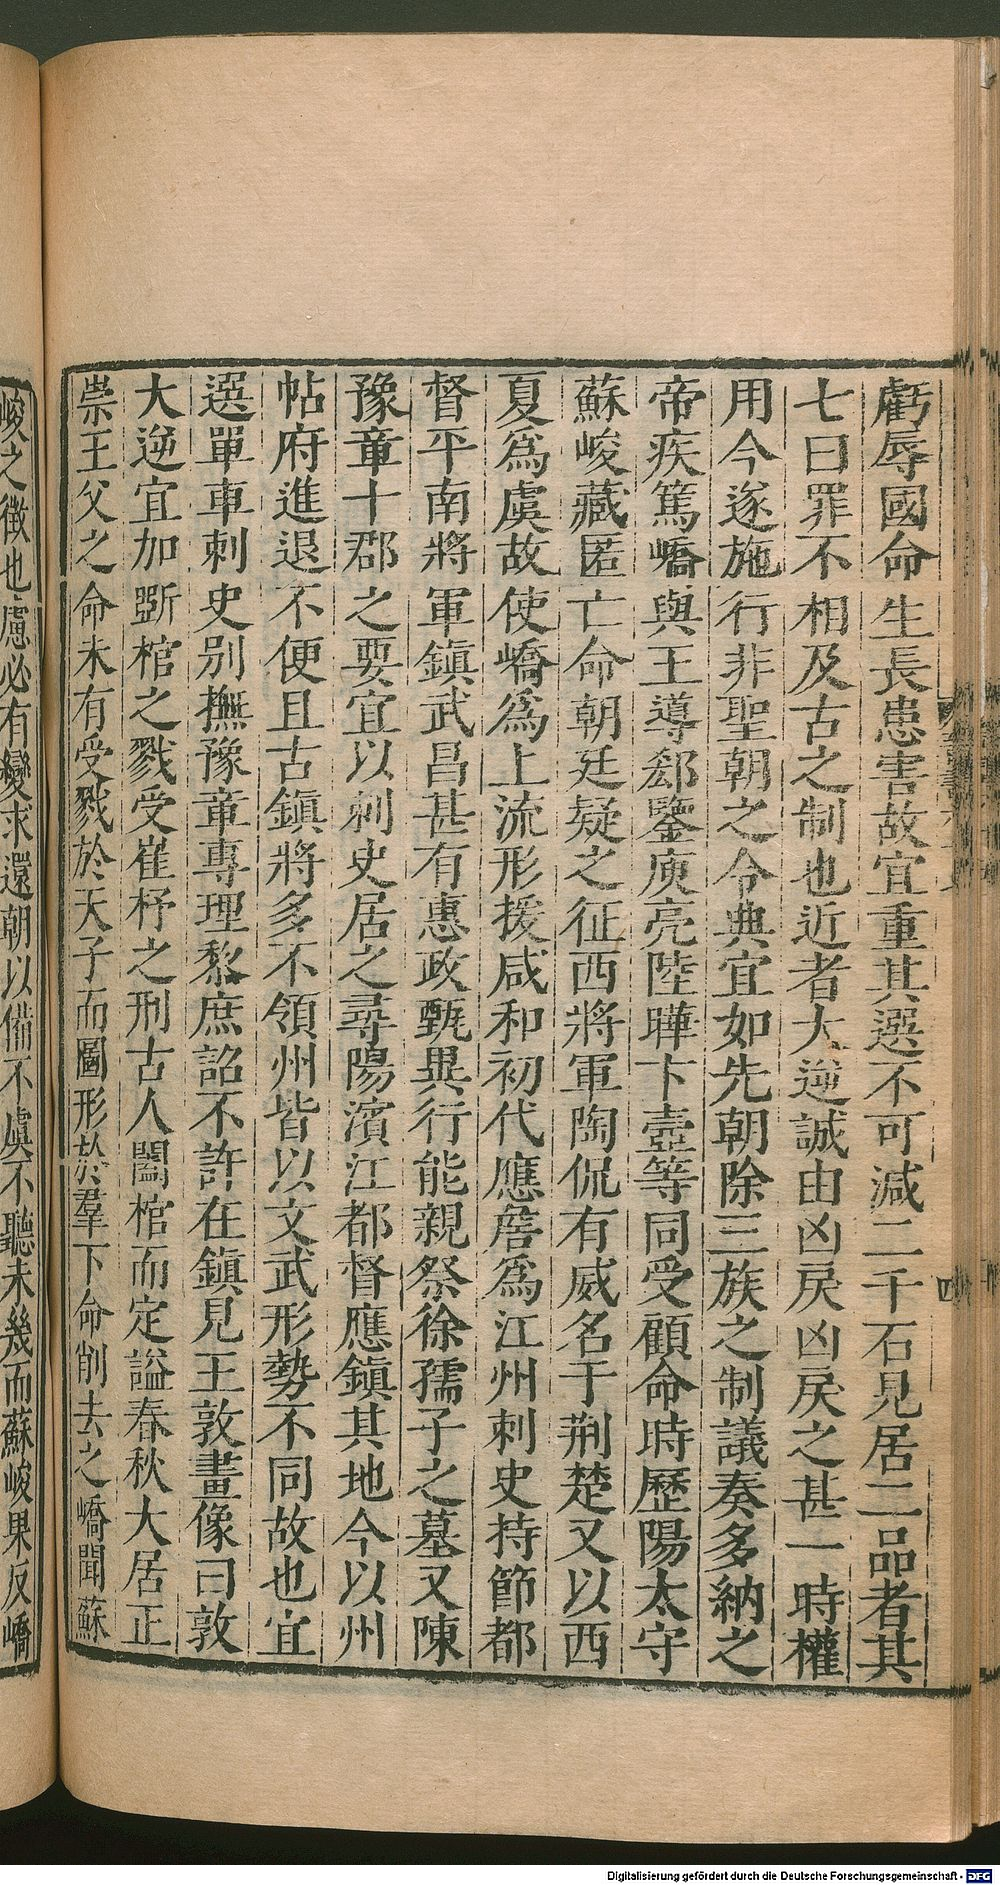 虧辱國命生長患害故宜重其選不可減二千石見居二品者其
七曰罪不相及古之制也近者大逆誠由凶戾凶戾之甚一時權
用今遂施行非聖朝之令典宜如先朝除三族之制議奏多納之
帝疾篤嶠與王導郄鑒庾亮陸曄卞壼等同受顧命時歷陽太守
蘇峻藏匿亡命朝廷疑之征西將軍陶侃有威名于荆楚又以西
夏爲虞故使嶠爲上流形援咸和初代應詹爲江州刺史持節都
督平南將軍鎮武昌甚有惠政甄異行能親祭徐孺子之墓又陳
豫章十郡之要宜以刺史居之尋陽濱江都督應鎮其地今以州
帖府進退不便且古鎮將多不領州皆以文武形勢不同故也宜
選單車刺史別撫豫章專理黎庶詔不許在鎮見王敦畫像曰敦
大逆宜加斲棺之戮受崔杼之刑古人闔棺而定謚春秋大居正
崇王父之命未有受戮於天子而圖形於羣下命削去之嶠聞蘇
峻之徵也慮必有變求還朝以備不虞不聽未幾而蘇峻果反嶠
四
Digitalisierung gefördert durch die Deutsche Forschungsgemeinschaft - DFG